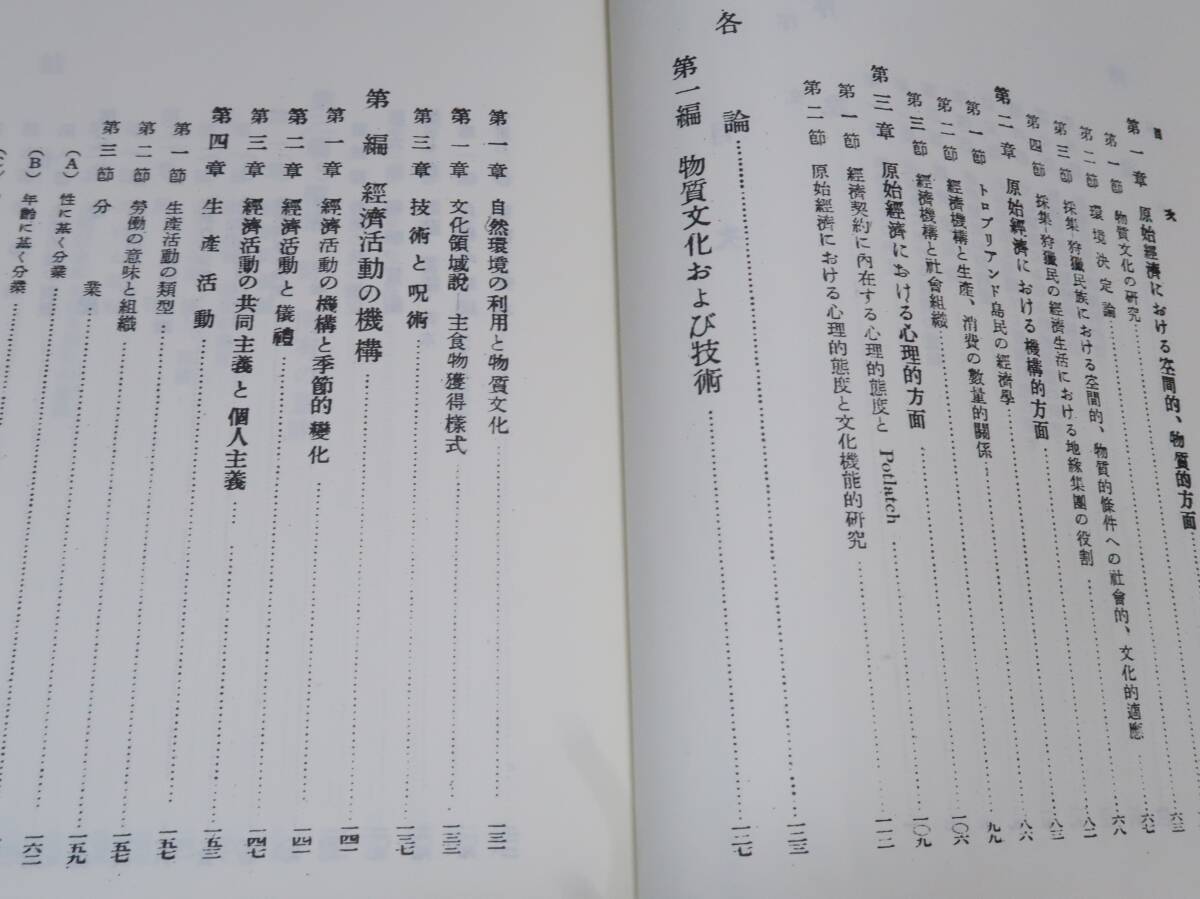 目次
第一章 原始經濟における空間的、物質的方面
第一節 物質文化の研究
第二節 環境決定論 六三
第三節 採集-狩獵民族における空間的、物質的條件への社會的、文化的適應 六七
第四節 採集-狩獵民の經濟生活における地緣集團の役割 六八
第二章 原始經濟における機構的方面 八二
第一節 トロブリアンド島民の經濟學 八三
第二節 經濟機構と生產、消費の數量的關係 八六
第三節 經濟機構と社會組織 九九
第三章 原始經濟における心理的方面 一〇六
第一節 經濟契約に內在する心理的態度と Potlatch 一〇九
第二節 原始經濟における心理的態度と文化機能的硏究 一一二
各論 一二三
第一編 物質文化および技術 一二七
第一章 自然環境の利用と物質文化 一三一
第一章 文化領域說—主食物獲得樣式 一三三
第三章 技術と呪術 一三七
第 編 經濟活動の機構 一四一
第一章 經濟活動の機構と季節的變化 一四一
第二章 經濟活動と儀禮 一四七
第三章 經濟活動の共同主義と個人主義 一五三
第四章 生產活動 一五七
第一節 生產活動の類型 一五七
第二節 勞働の意味と組織 一五九
第三節 分業 一六二
(A) 性に基く分業
(B) 年齡に基く分業